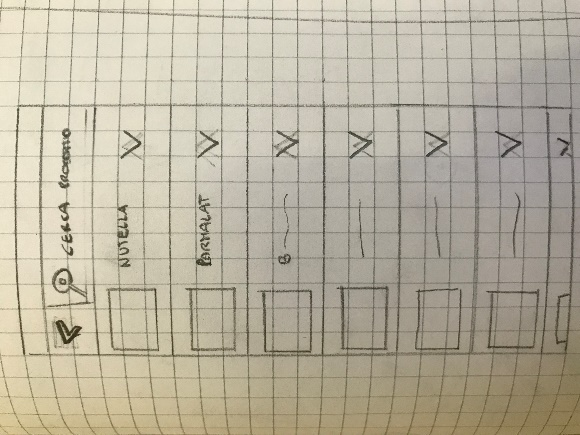 CERCA PRODOTTO
NUTELLA
PARMALAT
B